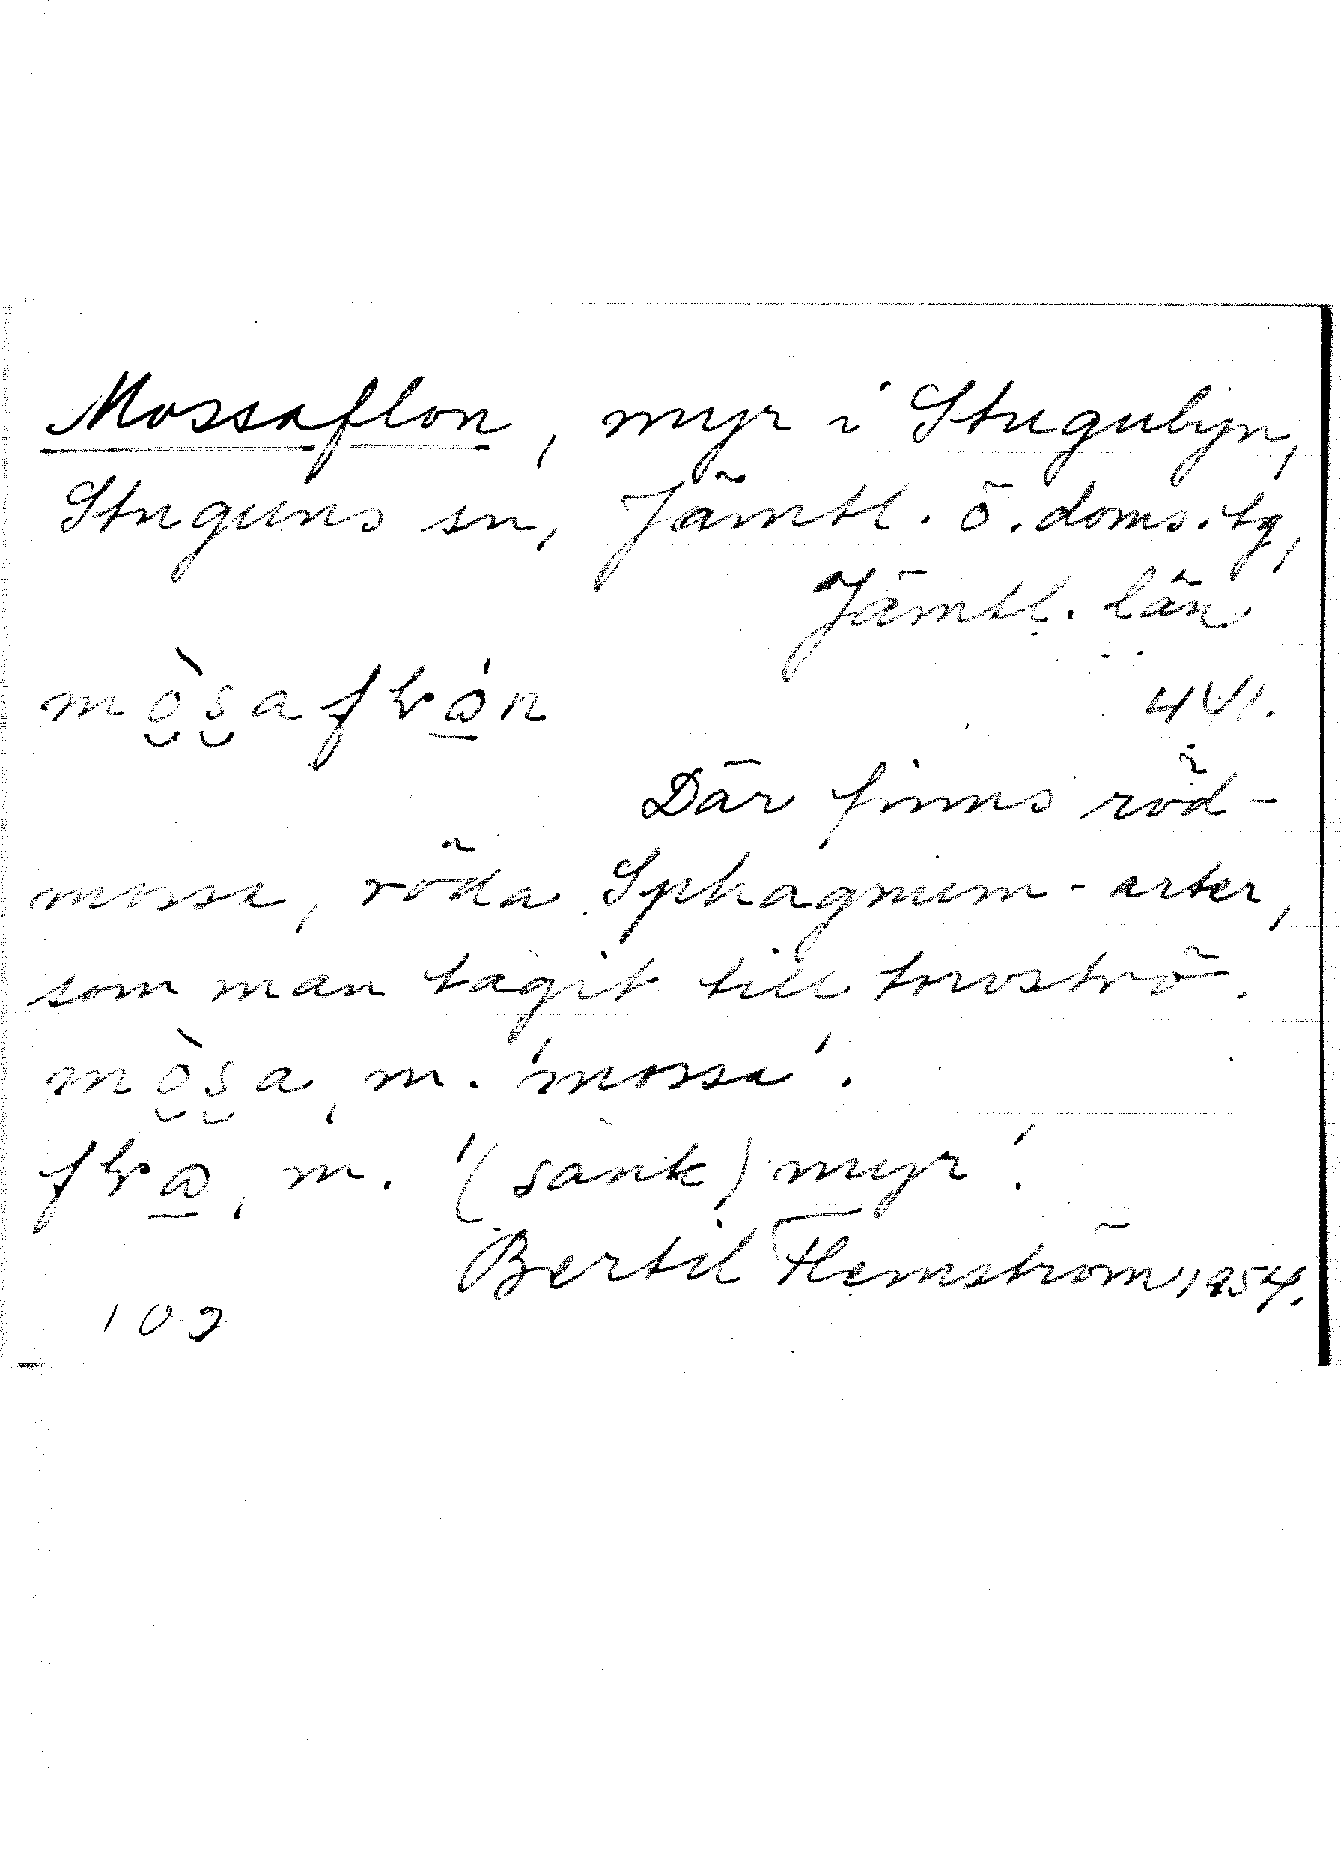 Mossaflon, myr i Stugubyn,
Stuguns sn, Jämtl. ö. doms.tg,
Jämtl. län
441.
Där finns röd-
mossa, röda Sphagnum-arter,
som man tagit till torvströ.
m. 'mossa'.
m. '(sank) myr'.
Bertil Flemström 1954.
102